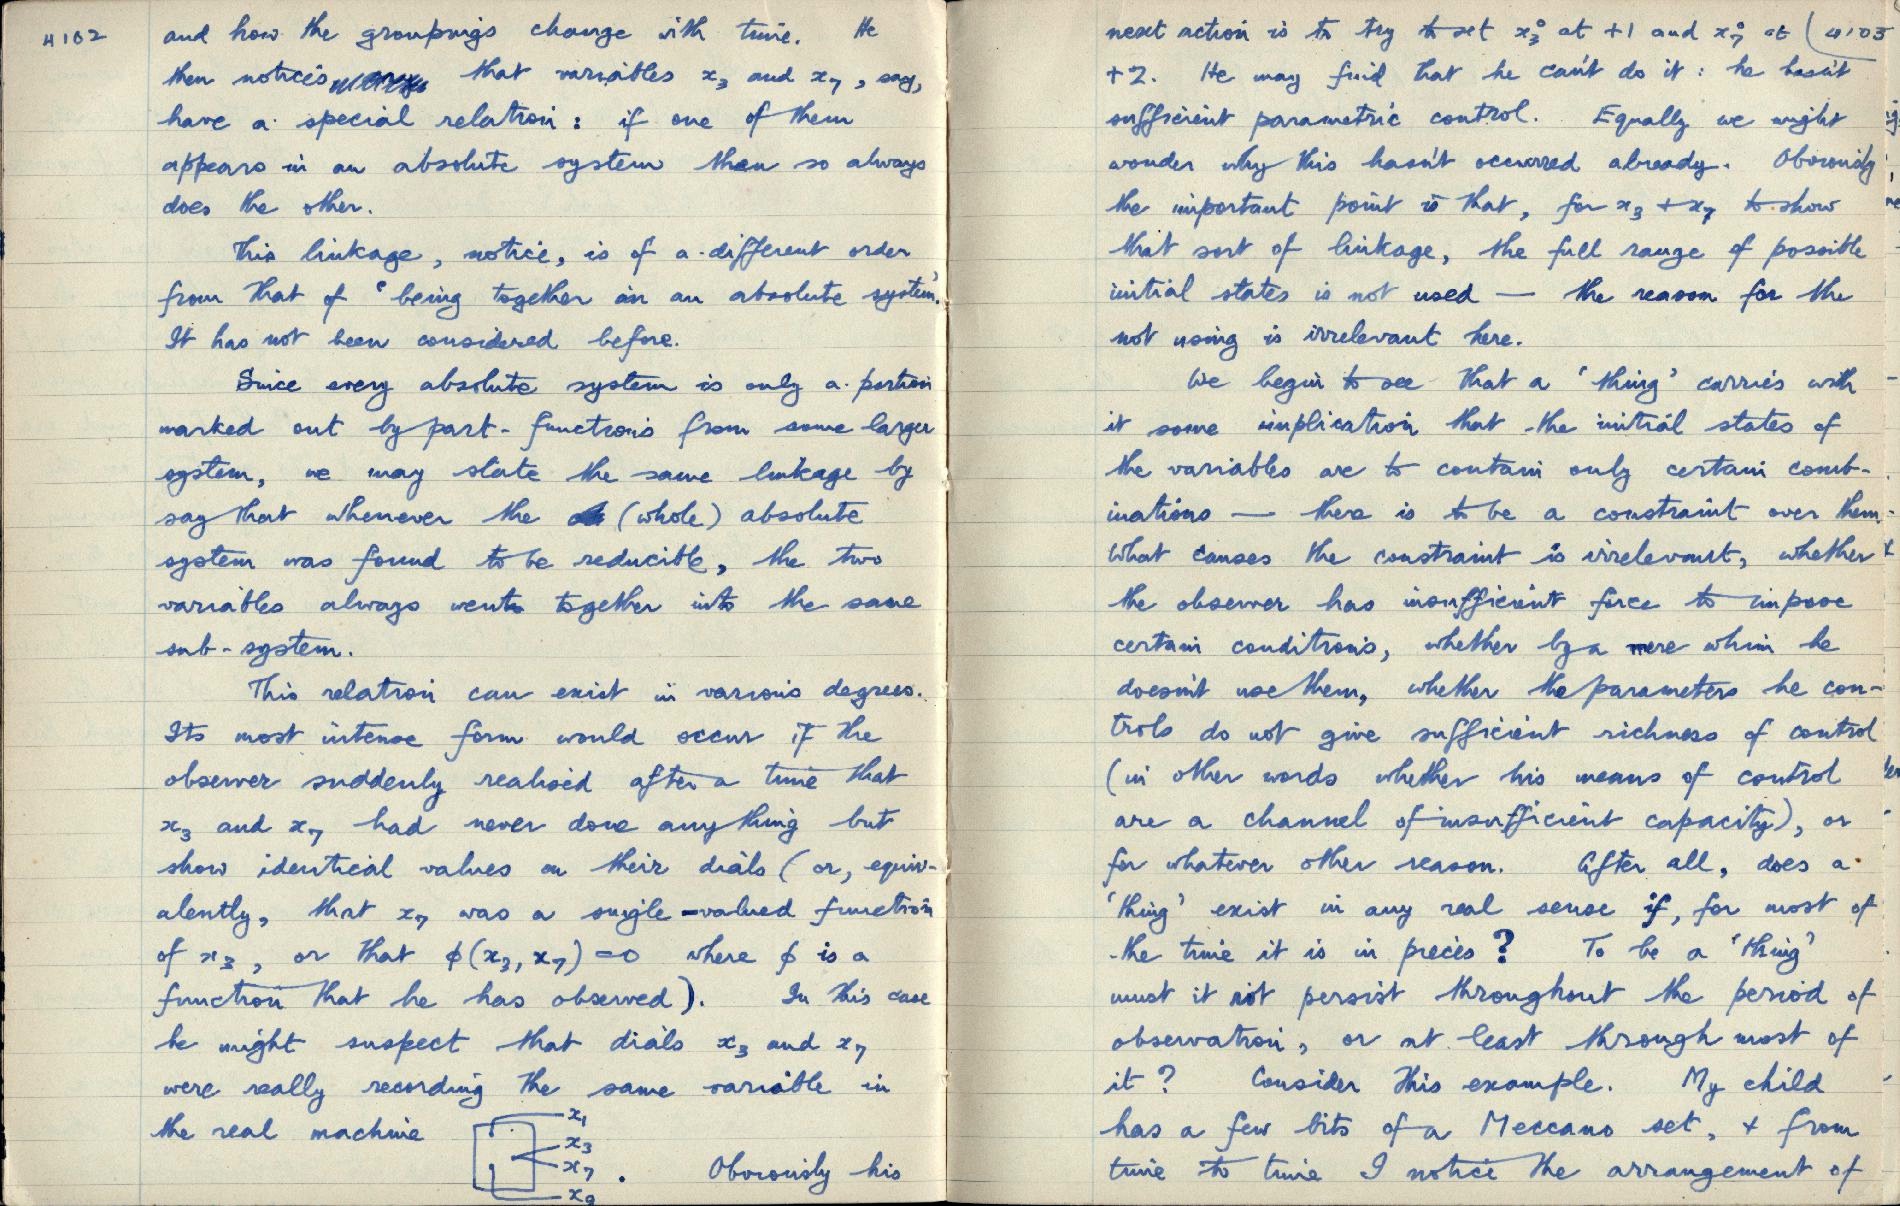 4102
and how the groupings change with time. He
then notices that variables x₃ and x₇, say,
have a special relation: if one of them
appears in an absolute system then so always
does the other.
This linkage, notice, is of a different order
from that of 'being together in an absolute system'.
It has not been considered before.
Since every absolute system is only a portion
marked out by part-functions from some larger
system, we may state the same linkage by
say that whenever the (whole) absolute
system was found to be reducible, the two
variables always went together into the same
sub-system.
This relation can exist in various degrees.
Its most intense form would occur if the
observer suddenly realised after a time that
x₃ and x₇ had never done anything but
show identical values on their dials (or, equiv-
alently, that x₇ was a single-valued function
of x₃, or that ϕ(x₃, x₇) = 0 where ϕ is a
function that he has observed). In this case
he might suspect that dials x₃ and x₇
were really recording the same variable in
the real machine
x₁
x₃
x₇
x₉
. Obviously his
4103
next action is to try to set x₃° at +1 and x₇° at
+2. He may find that he can't do it: he hasn't
sufficient parametric control. Equally we might
wonder why this hasn't occurred already. Obviously
the important point is that, for x₃ + x₇ to show
that sort of linkage, the full range of possible
initial states is not used — the reason for the
not using is irrelevant here.
We begin to see that a 'thing' carries with
it some implication that the initial states of
the variables are to contain only certain comb-
inations — there is to be a constraint over them.
What causes the constraint is irrelevant, whether
the observer has insufficient force to impose
certain conditions, whether by a mere whim he
doesn't use them, whether the parameters he con-
trols do not give sufficient richness of control
(in other words whether his means of control
are a channel of insufficient capacity), or
for whatever other reason. After all, does a
'thing' exist in any real sense if, for most of
the time it is in pieces? To be a 'thing'
must it not persist throughout the period of
observation, or at least through most of
it? Consider this example. My child
has a few bits of a Meccano set, + from
time to time I notice the arrangement of